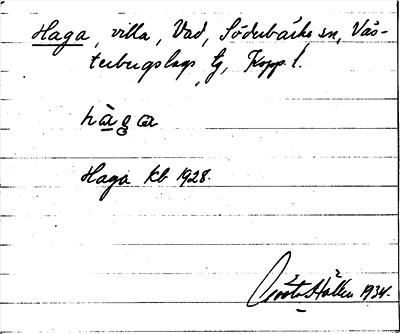 Haga, villa, Vad, Söderbärke sn, Väs-
terbergslags tg, Kopp. l.
hàga
Haga kb 1928.
Gösta Hallen 1934.